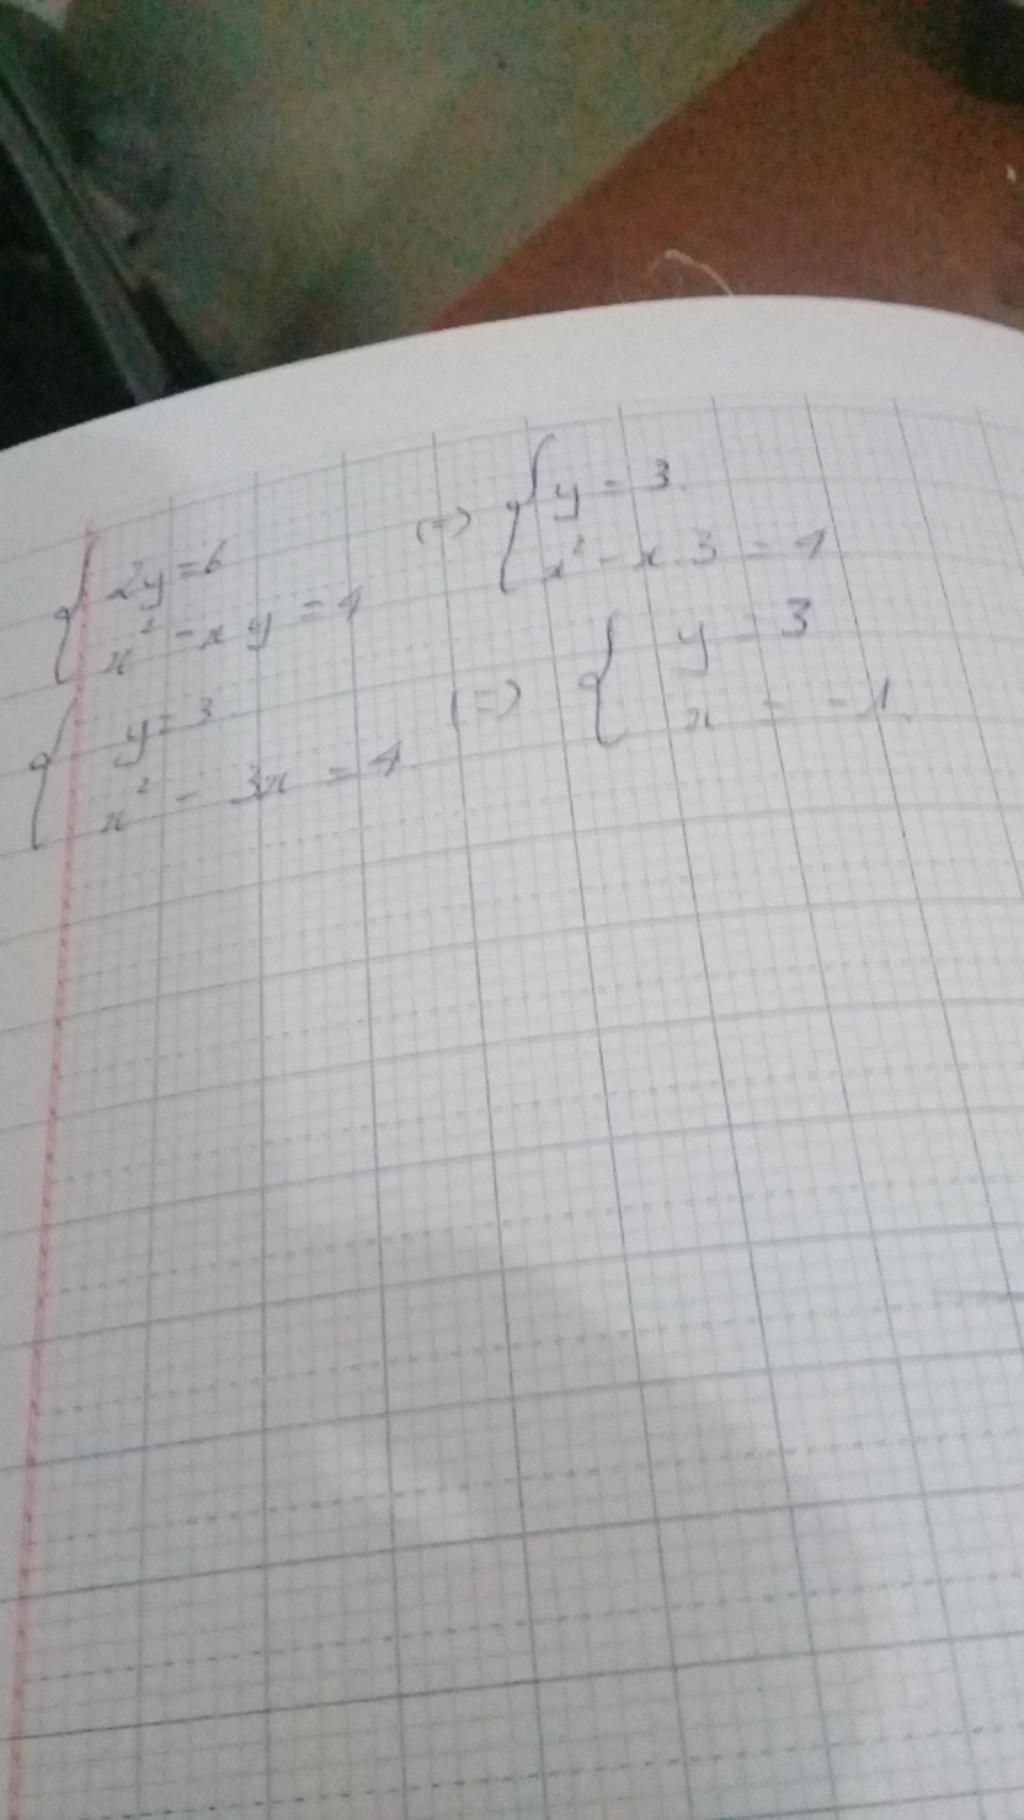 { 2y = 6
x² - xy = 4
(=) { y = 3.
x² - x.3 = 4
{ y = 3
x² - 3x = 4
(=) { y = 3
x = -1.